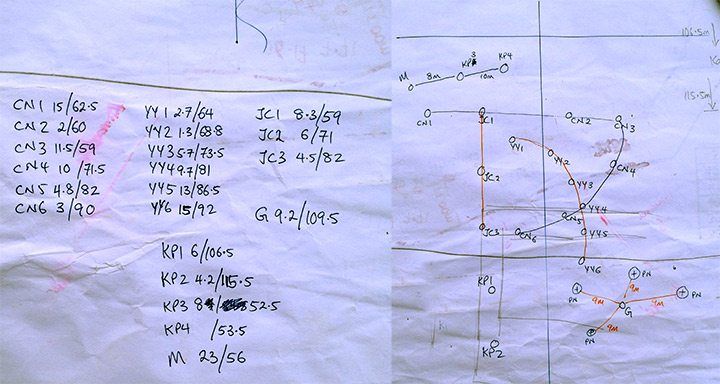 K
CN1 15/62.5
CN2 2/60
CN3 11.5/59
CN4 10/71.5
CN5 4.8/82
CN6 3/90
YY1 2.7/64
YY2 1.3/68.8
YY3 5.7/73.5
YY4 9.7/81
YY5 13/86.5
YY6 15/92
JC1 8.3/59
JC2 6/71
JC3 4.5/82
G 9.2/109.5
KP1 6/106.5
KP2 4.2/115.5
KP3 8 52.5
KP4 /53.5
M 23/56
106.5m
115.5m
M
8m
KP3
10m
KP4
CN1
JC1
CN2
CN3
YY1
YY2
CN4
JC2
YY3
YY4
CN5
JC3
CN6
YY5
YY6
KP1
PN
9M
PN
9M
9M
PN
G
9M
PN
KP2